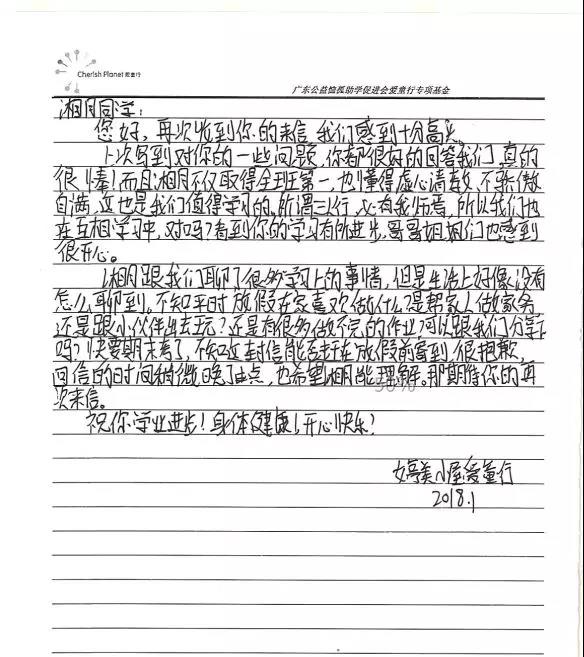 Cherish Planet 爱童行
广东公益恤孤助学促进会爱童行专项基金
湘月同学:
您好,再次收到你的来信,我们感到十分高兴。
上次写到对你的一些问题,你都很好的回答我们,真的
很棒!而且湘月不仅取得全班第一,也懂得虚心请教,不骄傲
自满,这也是我们值得学习的。所谓三人行,必有我师焉,所以我们也
在互相学习中,对吗?看到你的学习有所进步,哥哥姐姐们也感到
很开心。
湘月跟我们聊了很多学习上的事情,但是生活上好像没有
怎么聊到。不知平时放假在家喜欢做什么?是帮家人做家务
还是跟小伙伴出去玩?还是有很多做不完的作业?可以跟我们分享
吗?快要期末考了,不知这封信能否赶在放假前寄到,很抱歉,
回信的时间稍微晚了点,也希望湘月能理解。那期待你的再
次来信。
祝你学业进步!身体健康!开心快乐!
婷美小屋爱童行
2018.1